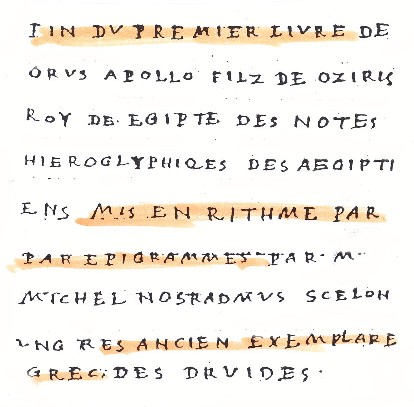 FIN DV PREMIER LIVRE DE
ORVS APOLLO FILZ DE OZIRIS
ROY DE· EGIPTE DES NOTES
HIEROGLYPHIQES DES AEGIPTI
ENS MIS EN RITHME PAR
PAR EPIGRAMMES PAR· M·
MICHEL NOSRADMVS SCELON
VNG RES ANCIEN EXEMPLARE
GREC: DES DRVIDES·